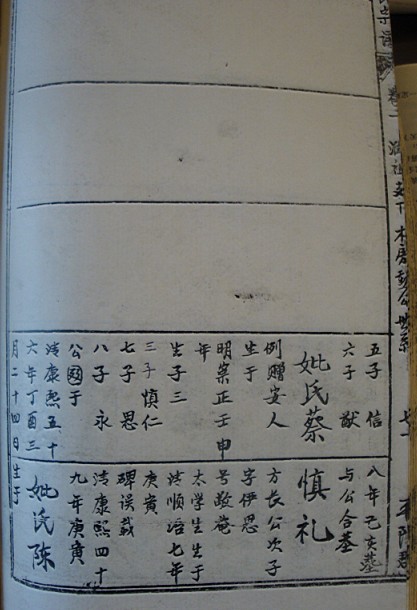 宗谱
卷二
公世系
五子 信
六子 猷
妣氏蔡
例赠安人
生于
明崇正壬申
年
生子三
三子 慎仁
七子 思
八子 永
公國于
清康熙五十
六年丁酉三
月二十四日
八年己亥墓
与公合墓
慎礼
方长公次子
字伊思
号敬菴
太学生生于
清顺治七年
庚寅
碑误载
清康熙四十
九年庚寅
妣氏陈
生于